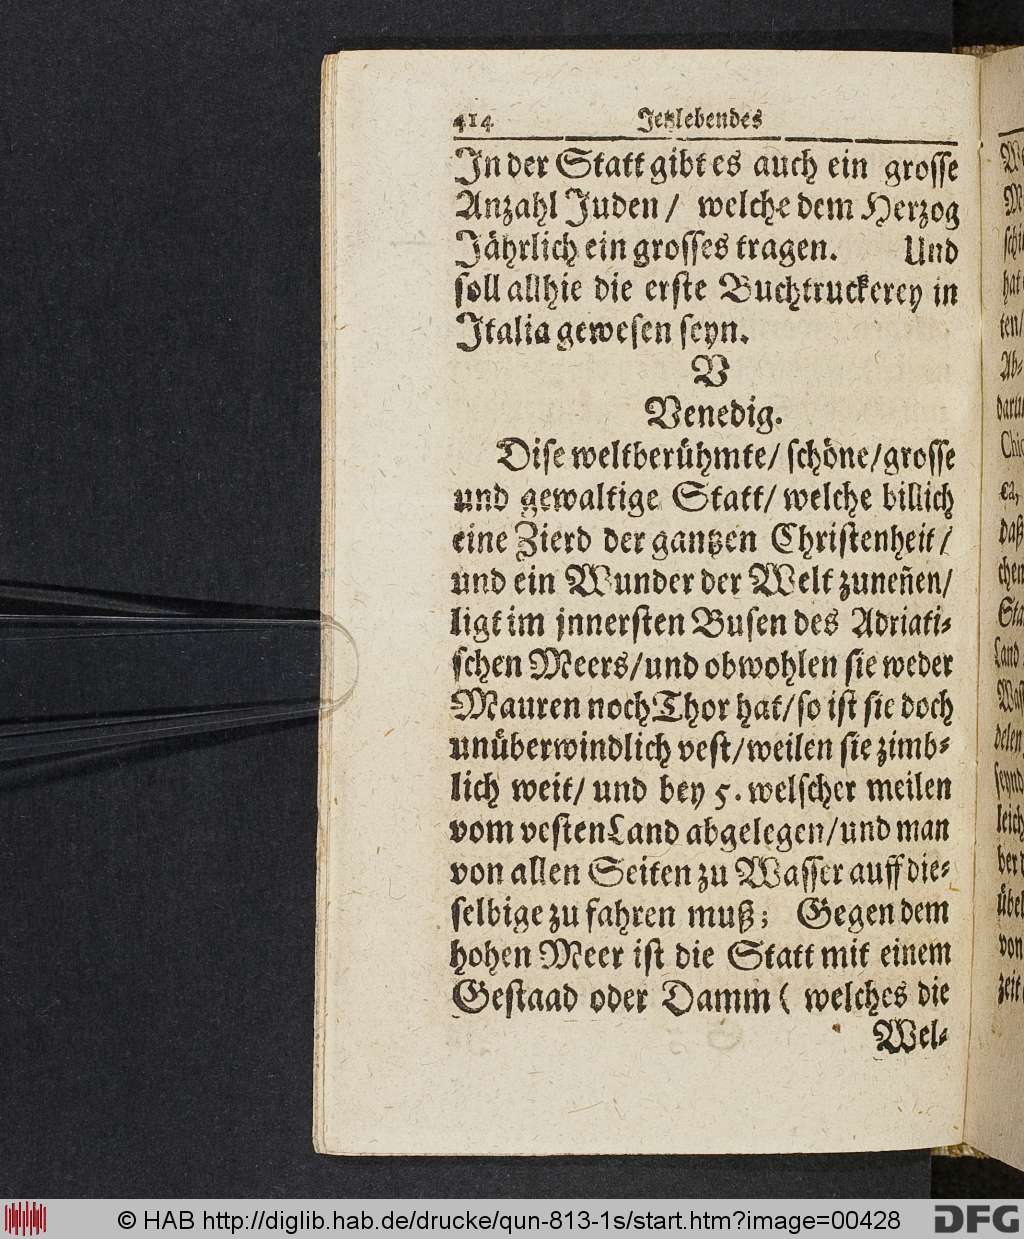 414 Jetzlebendes
In der Statt gibt es auch ein grosse
Anzahl Juden / welche dem Herzog
Jährlich ein grosses tragen. Und
soll allhie die erste Buchtruckerey in
Italia gewesen seyn.
V
Venedig.
Dise weltberühmte/ schöne/grosse
und gewaltige Statt/ welche billich
eine Zierd der gantzen Christenheit/
und ein Wunder der Welt zuneñen/
ligt im jnnersten Busen des Adriati-
schen Meers/und obwohlen sie weder
Mauren noch Thor hat/so ist sie doch
unüberwindlich vest/weilen sie zimb-
lich weit/ und bey 5. welscher meilen
vom vesten Land abgelegen/und man
von allen Seiten zu Wasser auff die-
selbige zu fahren muß; Gegen dem
hohen Meer ist die Statt mit einem
Gestaad oder Damm ( welches die
Wel-
schi
hat
ten/
Ab-
daru
daß
chen
Sta
Land
Was
delen
seynd
leich
ber
übel
von
zeit
© HAB http://diglib.hab.de/drucke/qun-813-1s/start.htm?image=00428
DFG